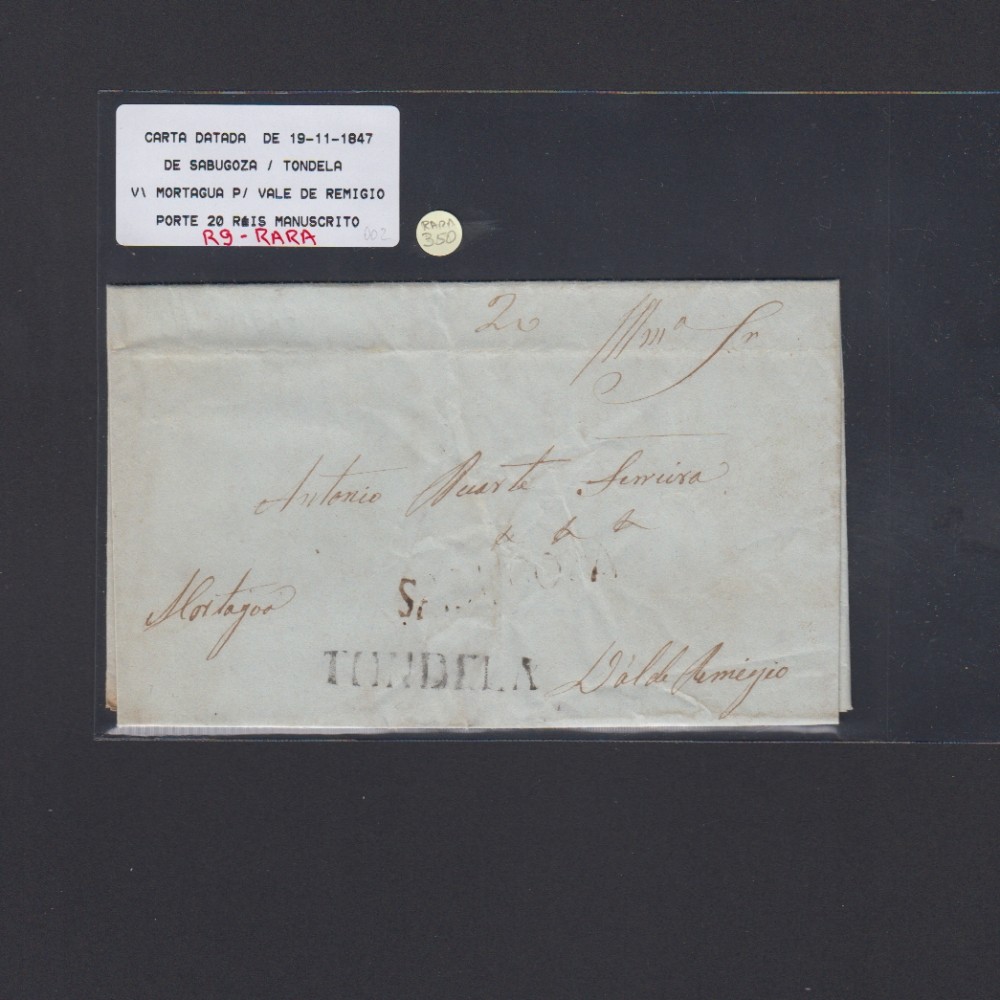 CARTA DATADA DE 19-11-1847
DE SABUGOZA / TONDELA
V\ MORTAGUA P/ VALE DE REMIGIO
PORTE 20 REIS MANUSCRITO
R9 - RARA
002
RARA
350
20
Illmº Sr
Antonio Duarte Ferreira
Mortagoa
TONDELA
Val de Remigio